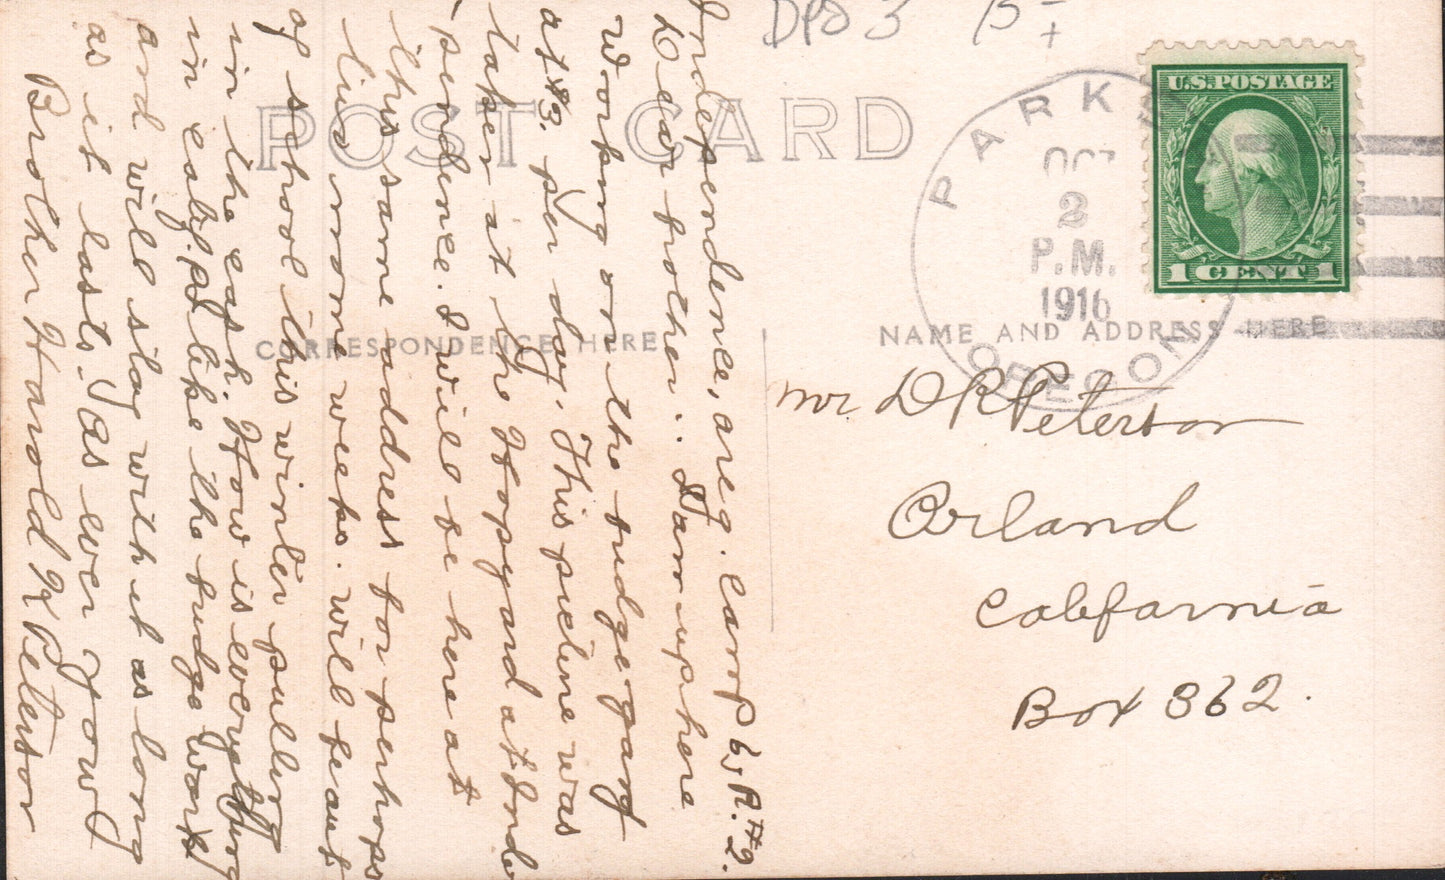 DPO 3 15
POST CARD
CORRESPONDENCE HERE
NAME AND ADDRESS HERE
U.S. POSTAGE
1 CENT 1
PARKER
OCT
2
P.M.
1916
OREGON
Mr D R Peterson
Orland
California
Box 362.
Independence, Oreg. Camp 6 W R. #2.
Dear Brother:. I am up here
working on the bridge gang
at $3. per day. This picture was
taken at the Hopyard at Inde
pendence. I will be here at
this same address for perhops
two more weeks. will beaut
of school this winter pulling
in the cash. How is everything
in calif. pd like the bridge work
and will stay with it as long
as it lasts. As ever yours
Brother Harold K Peterson